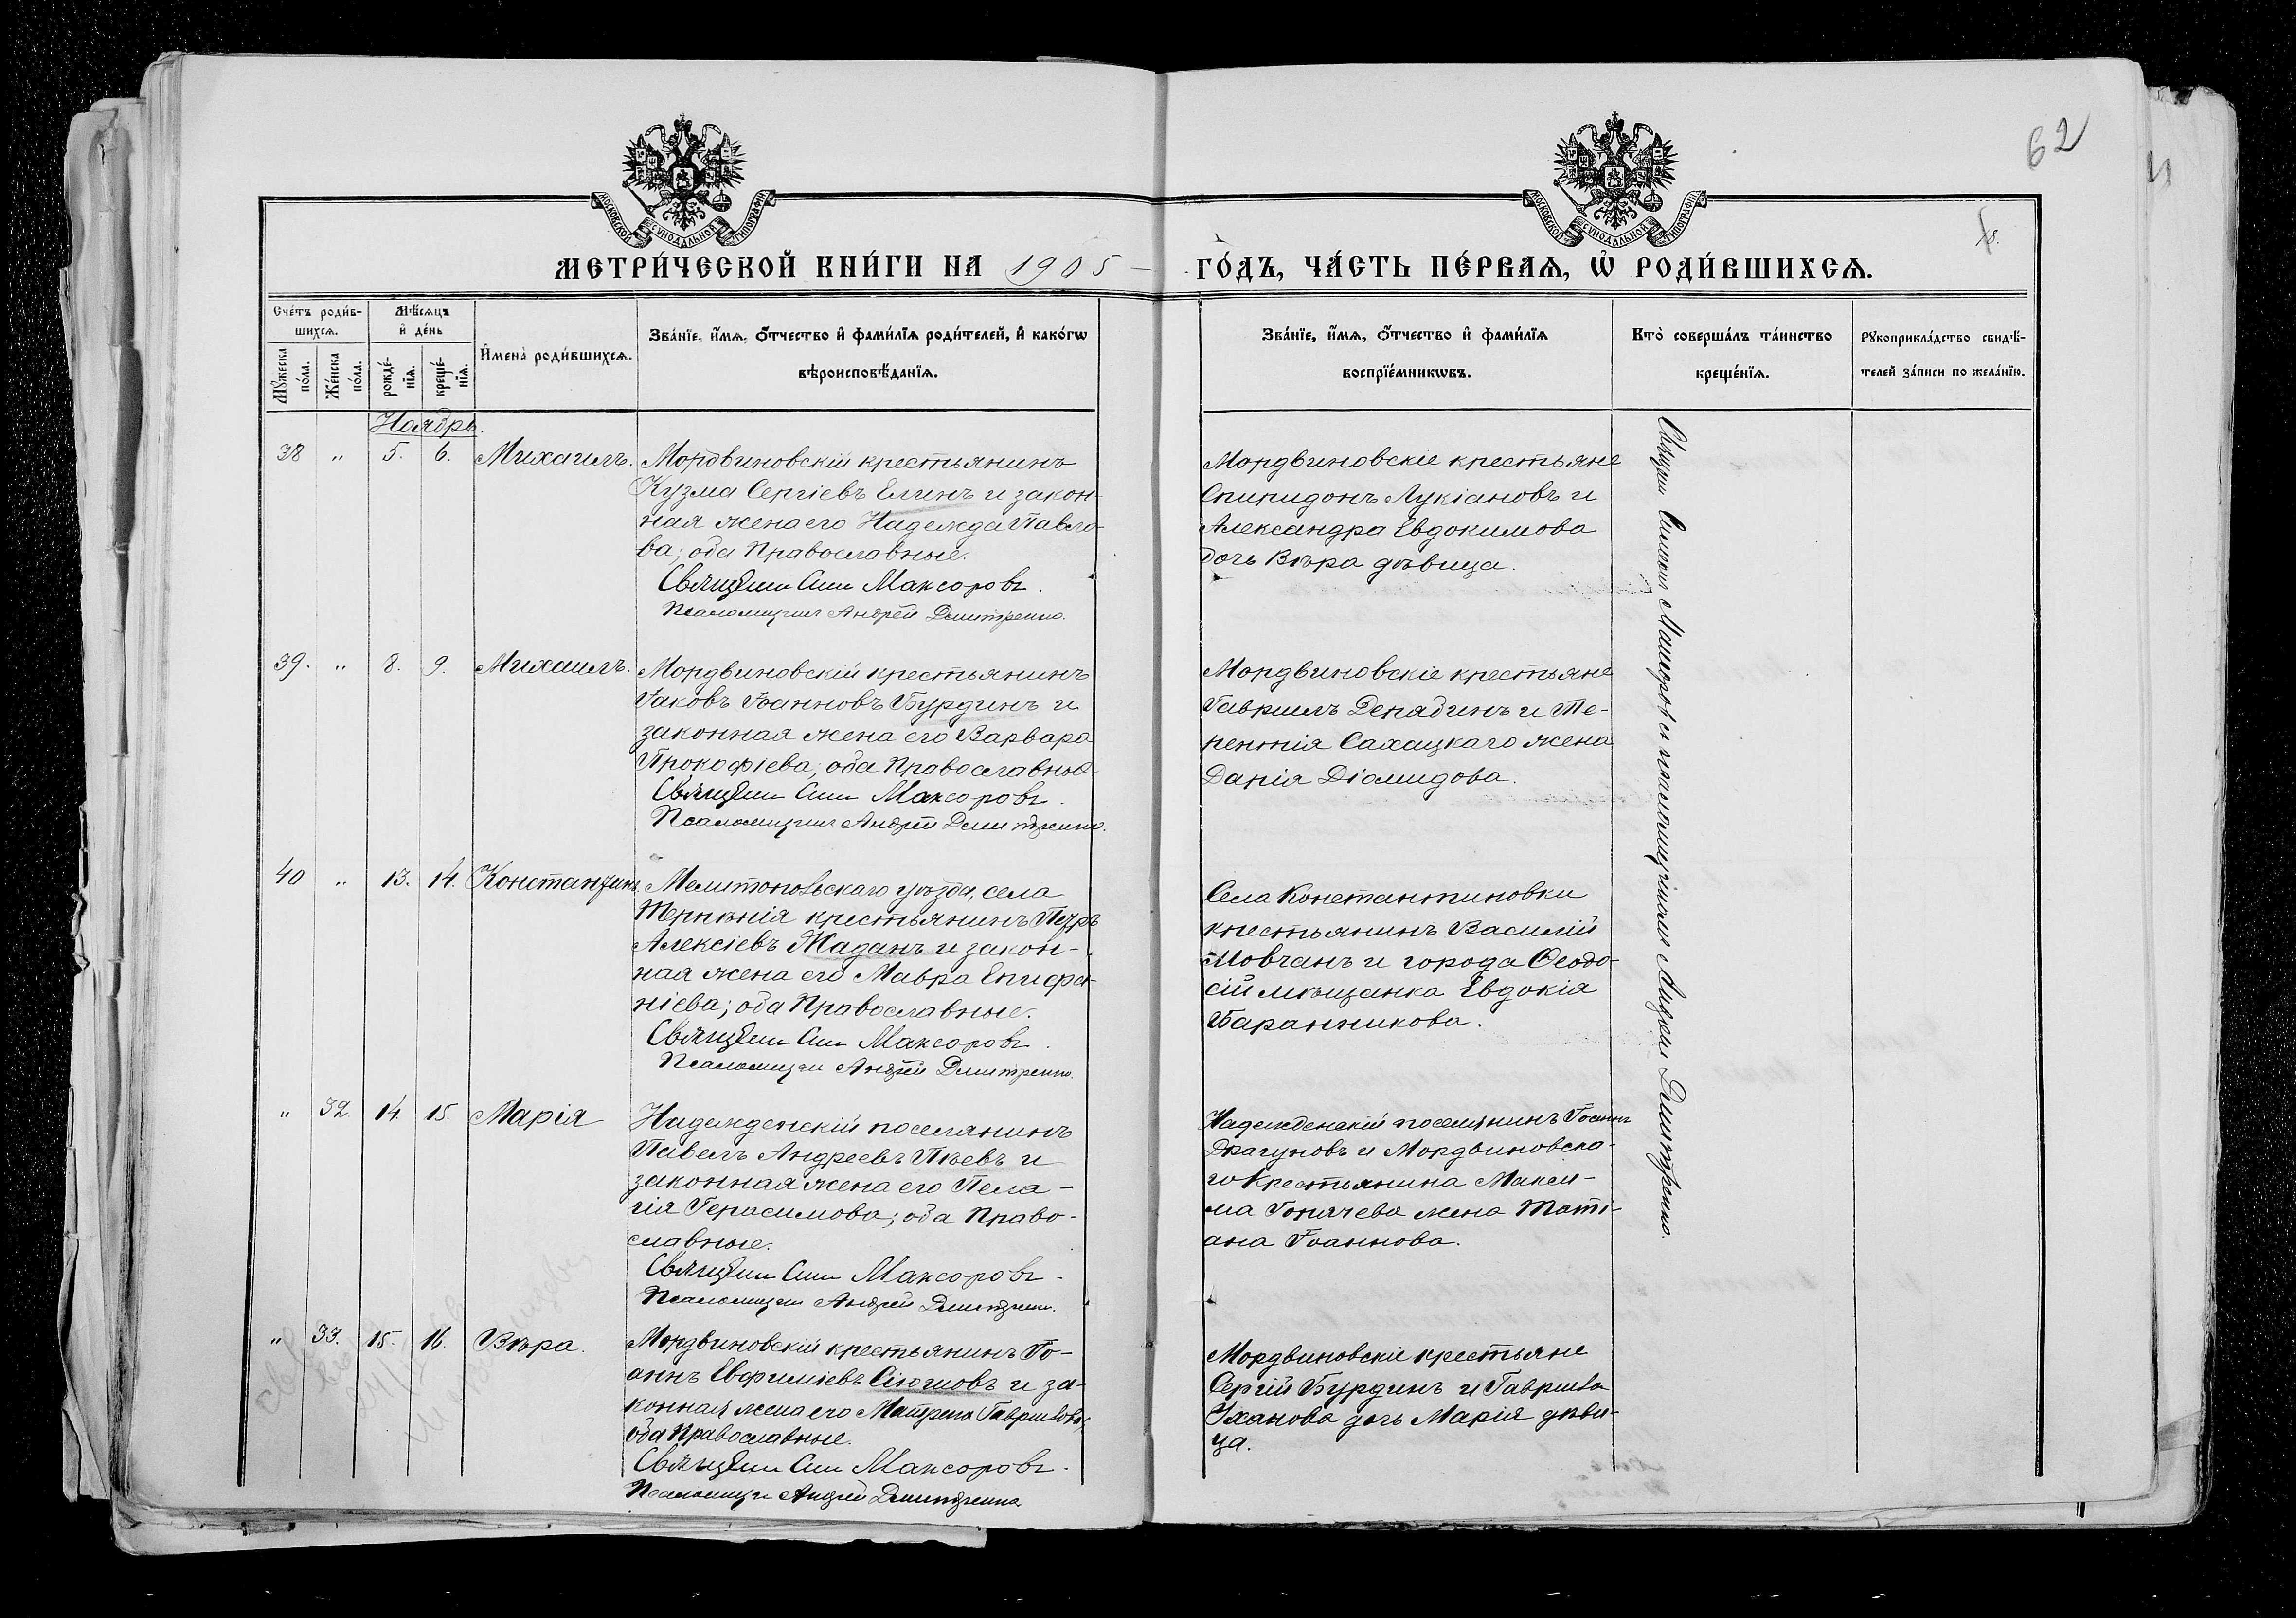 62
МОСКОВСКОЙ СѴНОДАЛЬНОЙ ТИПОГРАФІИ
МОСКОВСКОЙ СѴНОДАЛЬНОЙ ТИПОГРАФІИ
МЕТРИ́ЧЕСКОЙ КНИ́ГИ НА 1905 ГО́ДЪ, ЧА́СТЬ ПЕ́РВАѦ, Ѽ РОДИ́ВШИХСѦ.
Сче́тъ роди́в-
шихсѧ.
Мꙋ́жеска по́ла.
Же́нска по́ла.
Мѣ́сѧцъ
и҆ де́нь
рожде́-
нїѧ.
креще́-
нїѧ.
И҆мена̀ роди́вшихсѧ.
Зва́нїе, и҆́мѧ, ѻ҆́тчество и҆ фами́лїѧ роди́телей, и҆ како́гѡ
вѣроисповѣ́данїѧ.
Зва́нїе, и҆́мѧ, ѻ҆́тчество и҆ фами́лїѧ
воспрїе́мникѡвъ.
Кто̀ соверша́лъ та́инство
креще́нїѧ.
Рꙋкоприкла́дство свидѣ́-
телей за́писи по жела́нїю.
Ноябрь.
38 " 5. 6. Михаилъ.
Мордвиновскій крестьянинъ
Кузма Сергіевъ Елинъ и закон-
ная жена его Надежда Павло-
ва; оба Православные.
Священ Сим Максоровъ.
Псаломщикъ Андрей Дмитренко.
Мордвиновскіе крестьяне
Спиридонъ Лукіановъ и
Александра Евдокимова
дочь Вѣра дѣвица.
39. " 8. 9. Михаилъ.
Мордвиновскій крестьянинъ
Іаковъ Іоанновъ Бурдинъ и
законная жена его Варвара
Прокофіева; оба Православные
Священ Сим Максоровъ.
Псаломщикъ Андрей Дмитренко.
Мордвиновскіе крестьяне
Гавриилъ Депядинъ и Те-
рентія Сахацкаго жена
Дарія Діомидова.
40 " 13. 14. Константинъ.
Мелитопольскаго уѣзда, села
Терпѣнія крестьянинъ Петръ
Алексіевъ Жаданъ и закон-
ная жена его Мавра Епифа-
ніева; оба Православные.
Священ Сим Максоровъ.
Псаломщи Андрей Дмитренко.
Села Константиновки
крестьянинъ Василій
Мовчанъ и города Ѳеодо-
сіи мѣщанка Евдокія
Баранникова.
" 32. 14. 15. Марія
Надежденскій поселянинъ
Павелъ Андреевъ Пѣевъ и
законная жена его Пела-
гія Герасимова; оба Право-
славные.
Священ Сим Максоровъ.
Псаломщи Андрей Дмитренко.
Надежденскій поселянинъ Іоаннъ
Драгуновъ и Мордвиновска-
го крестьянина Макси-
ма Горячева жена Тати-
ана Іоаннова.
" 33. 15. 16. Вѣра.
Мордвиновскій крестьянинъ Іо-
аннъ Евфиміевъ Сіогиовъ и за-
конная жена его Матрена Гавриилова;
оба Православные.
Священ Сим Максоровъ.
Псаломщи Андрей Дмитренко.
Мордвиновскіе крестьяне
Сергій Бурдинъ и Гавриила
Уханова дочь Марія дѣви-
ца.
Максоровъ и псаломщикомъ Андреемъ Дмитренко.